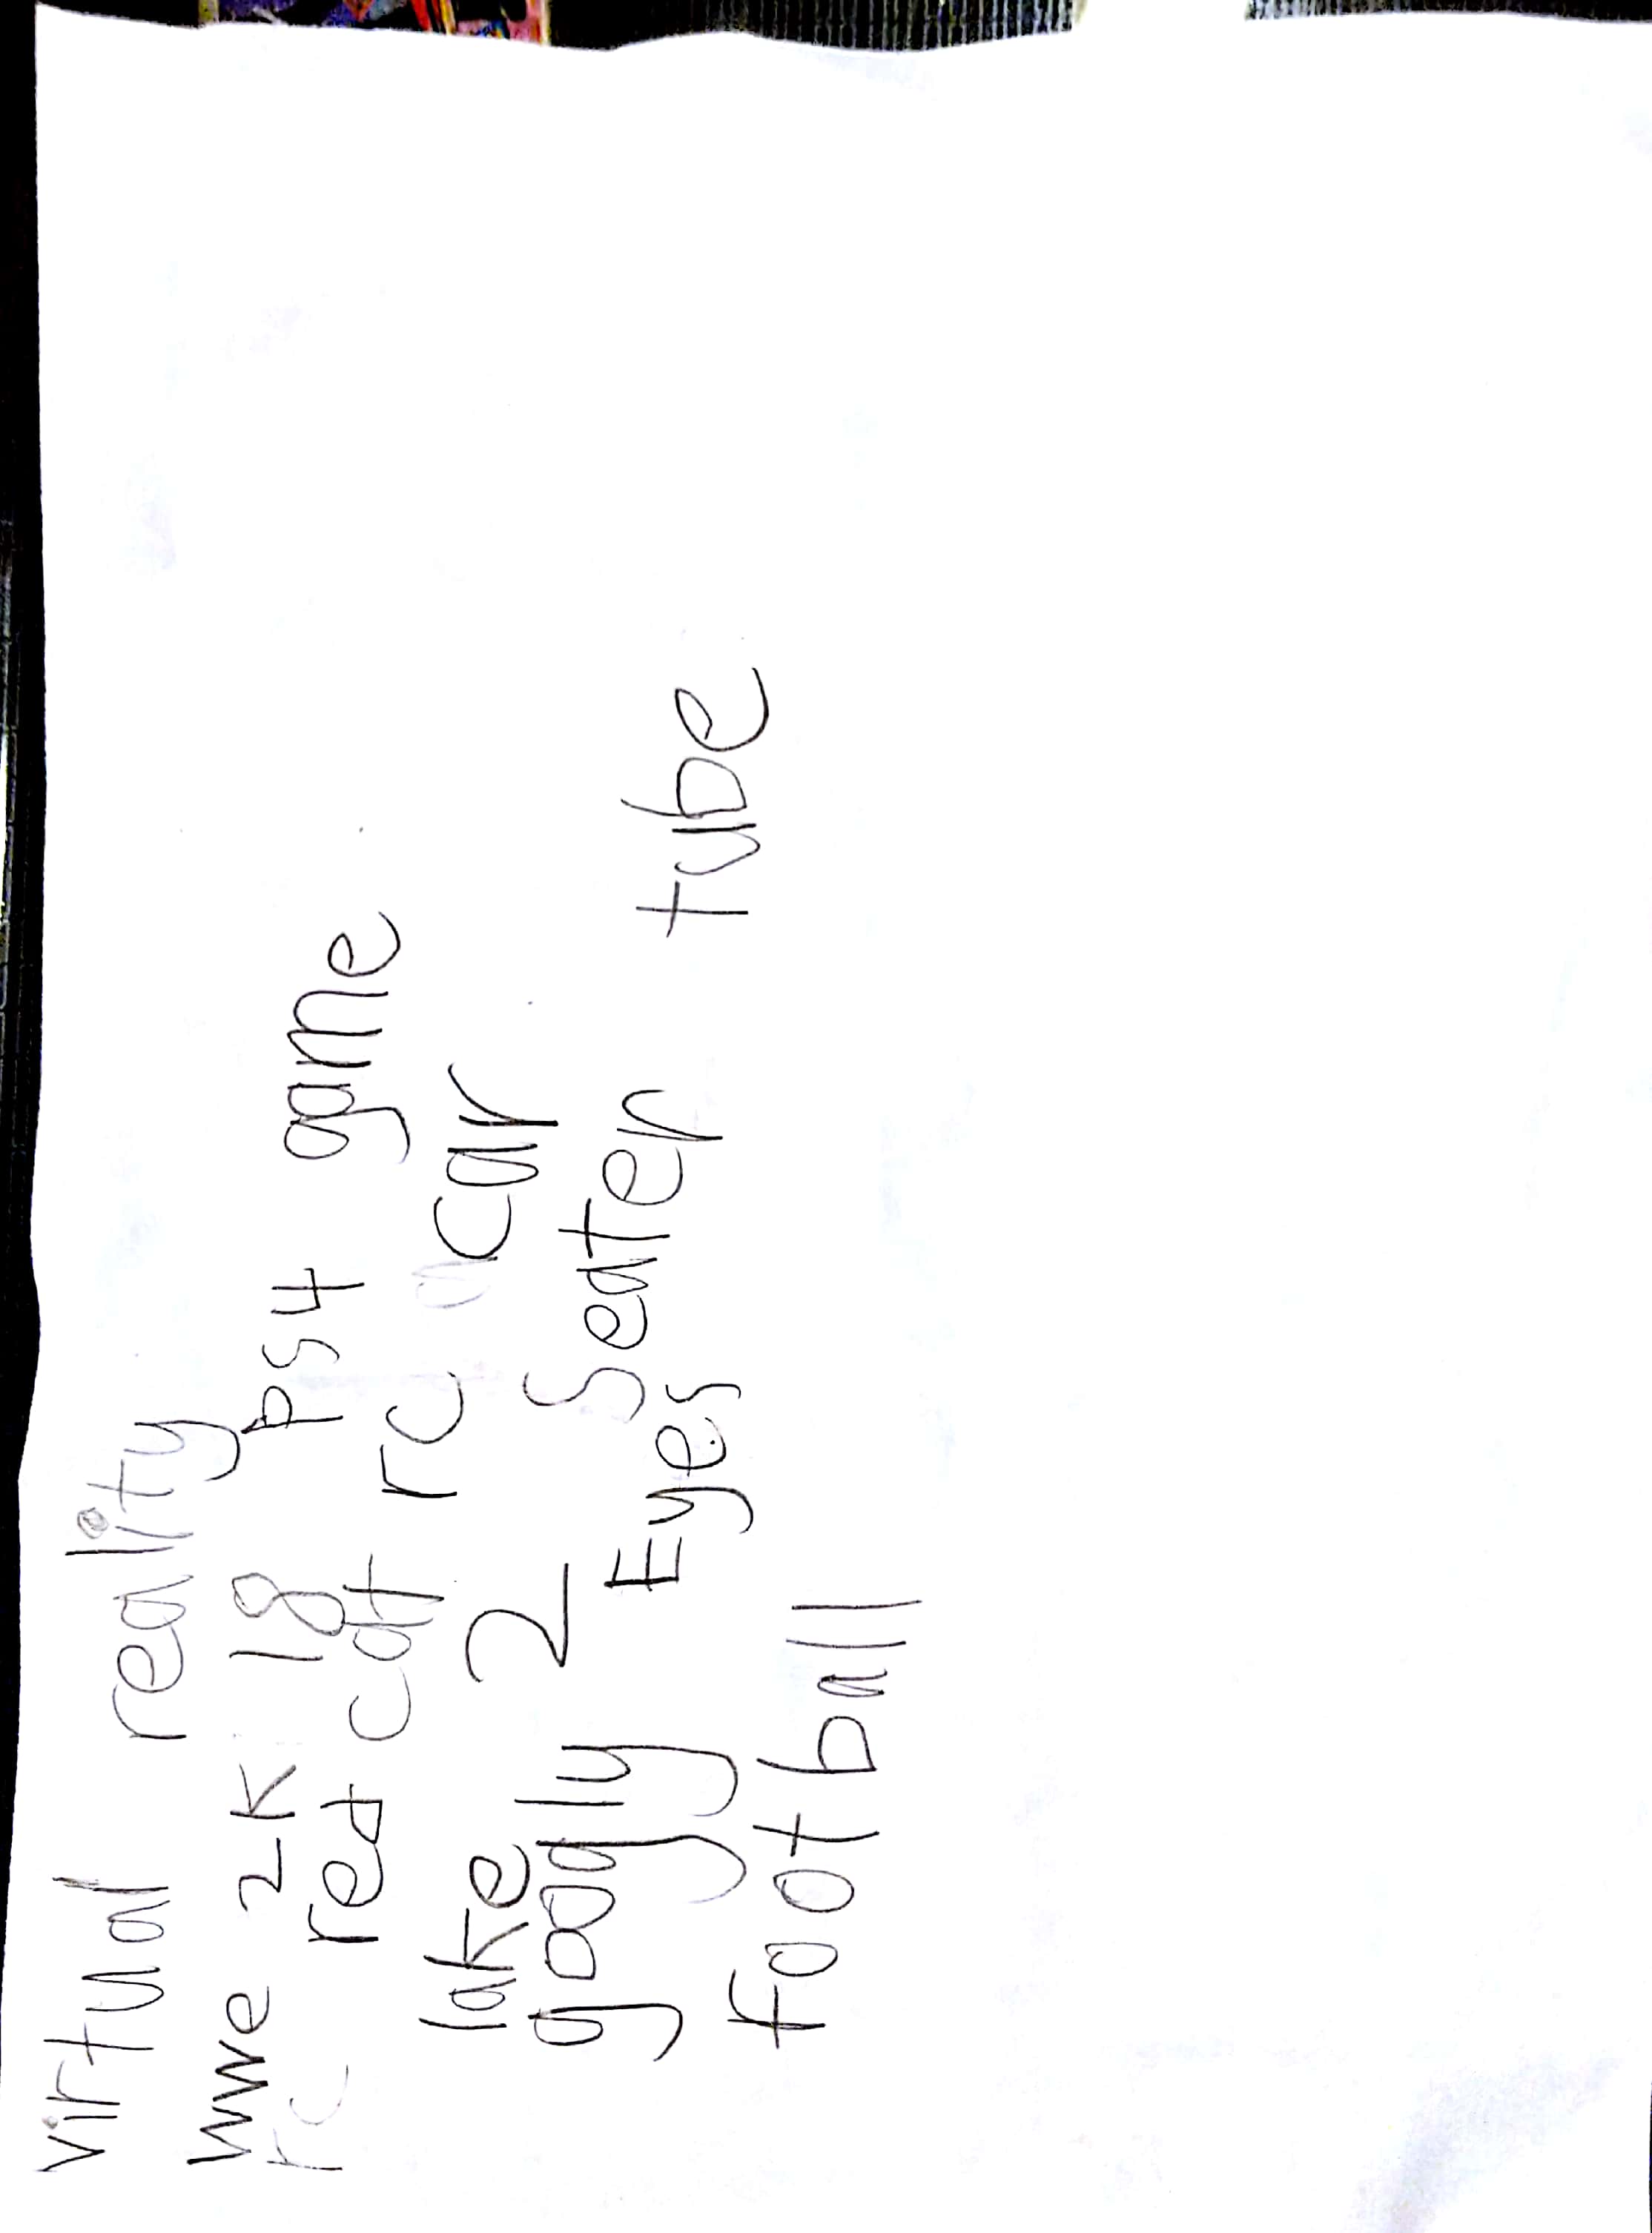 virtual reality
wwe 2K 18 PS4 game
rc red cat rc car
lake 2 seater tube
googly Eyes
football